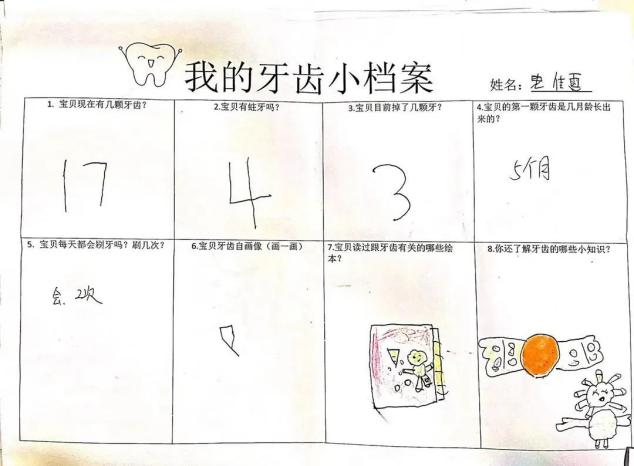 我的牙齿小档案
姓名：
1. 宝贝现在有几颗牙齿？
17
2.宝贝有蛀牙吗？
4
3.宝贝目前掉了几颗牙？
3
4.宝贝的第一颗牙齿是几月龄长出
来的？
5个月
5. 宝贝每天都会刷牙吗？刷几次？
会、2次
6.宝贝牙齿自画像（画一画）
7.宝贝读过跟牙齿有关的哪些绘
本？
8.你还了解牙齿的哪些小知识？